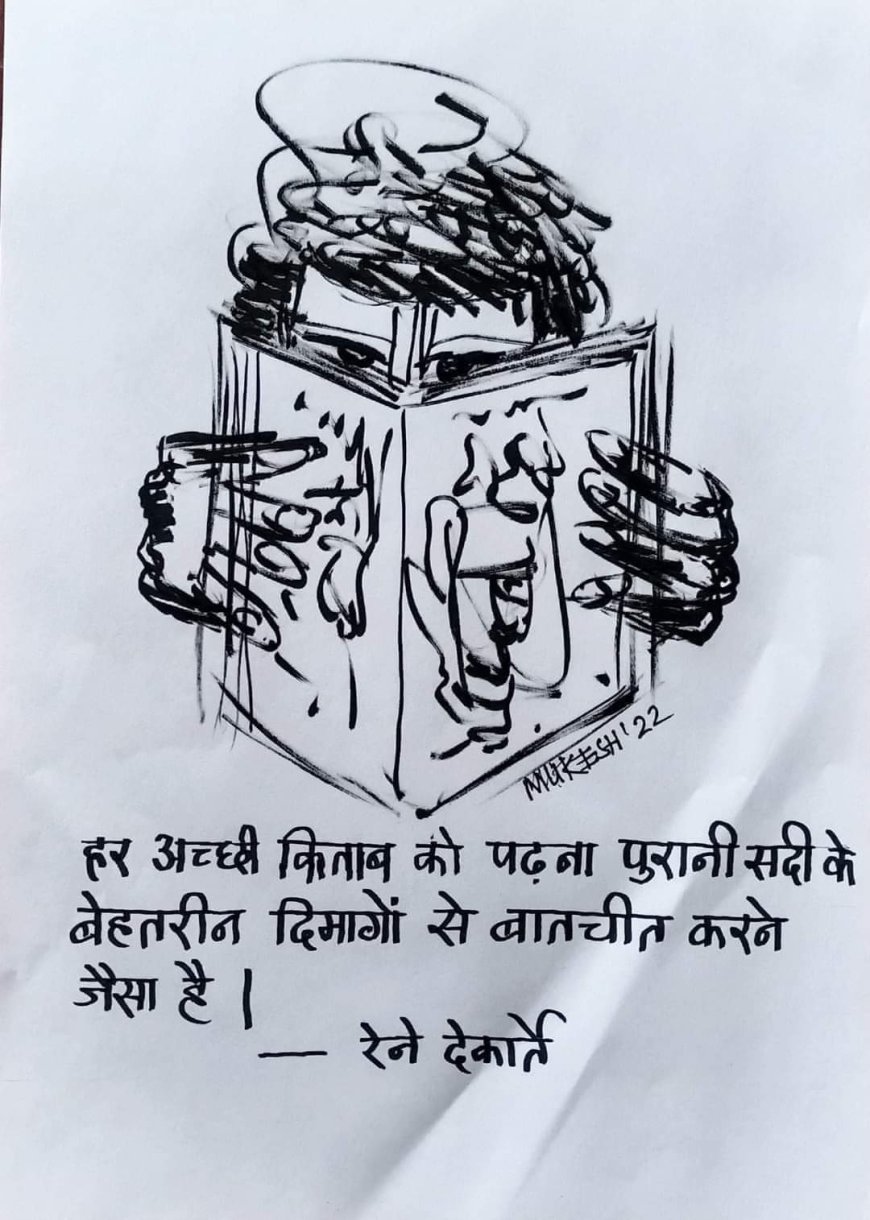 MUKESH'22
हर अच्छी किताब को पढ़ना पुरानी सदी के
बेहतरीन दिमागों से बातचीत करने
जैसा है |
— रेने देकार्ते